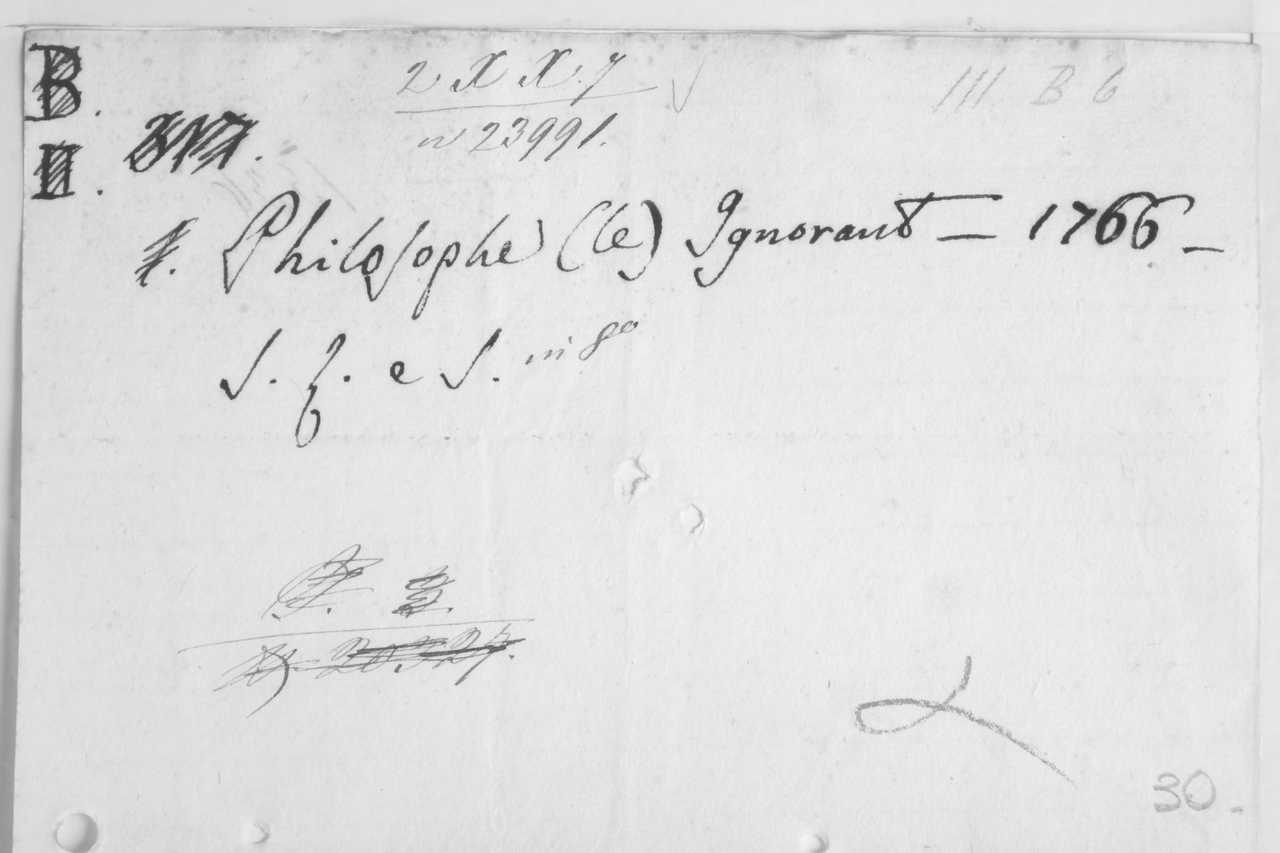 B.
2 X X. 7
III B 6
n 23991.
II.
Philosophe (le) Ignorant — 1766 —
S. l. e S. in 8°
30.